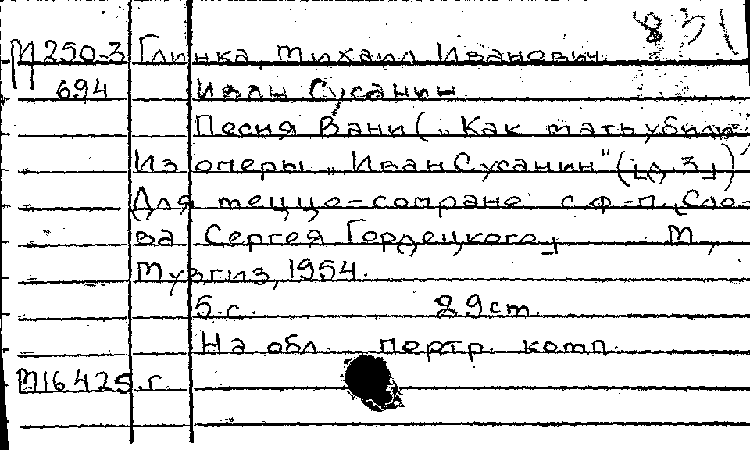 831
М 250-3 Глинка, Михаил Иванович.
694 Иван Сусанин
Песня Вани („Как мать убили"
Из оперы „Иван Сусанин" (д. 3)
Для меццо-сопрано с ф-п. [Сло-
ва Сергея Городецкого] М.,
Музгиз, 1954.
5 с. 29 ст.
На обл. портр. комп.
М16425 г